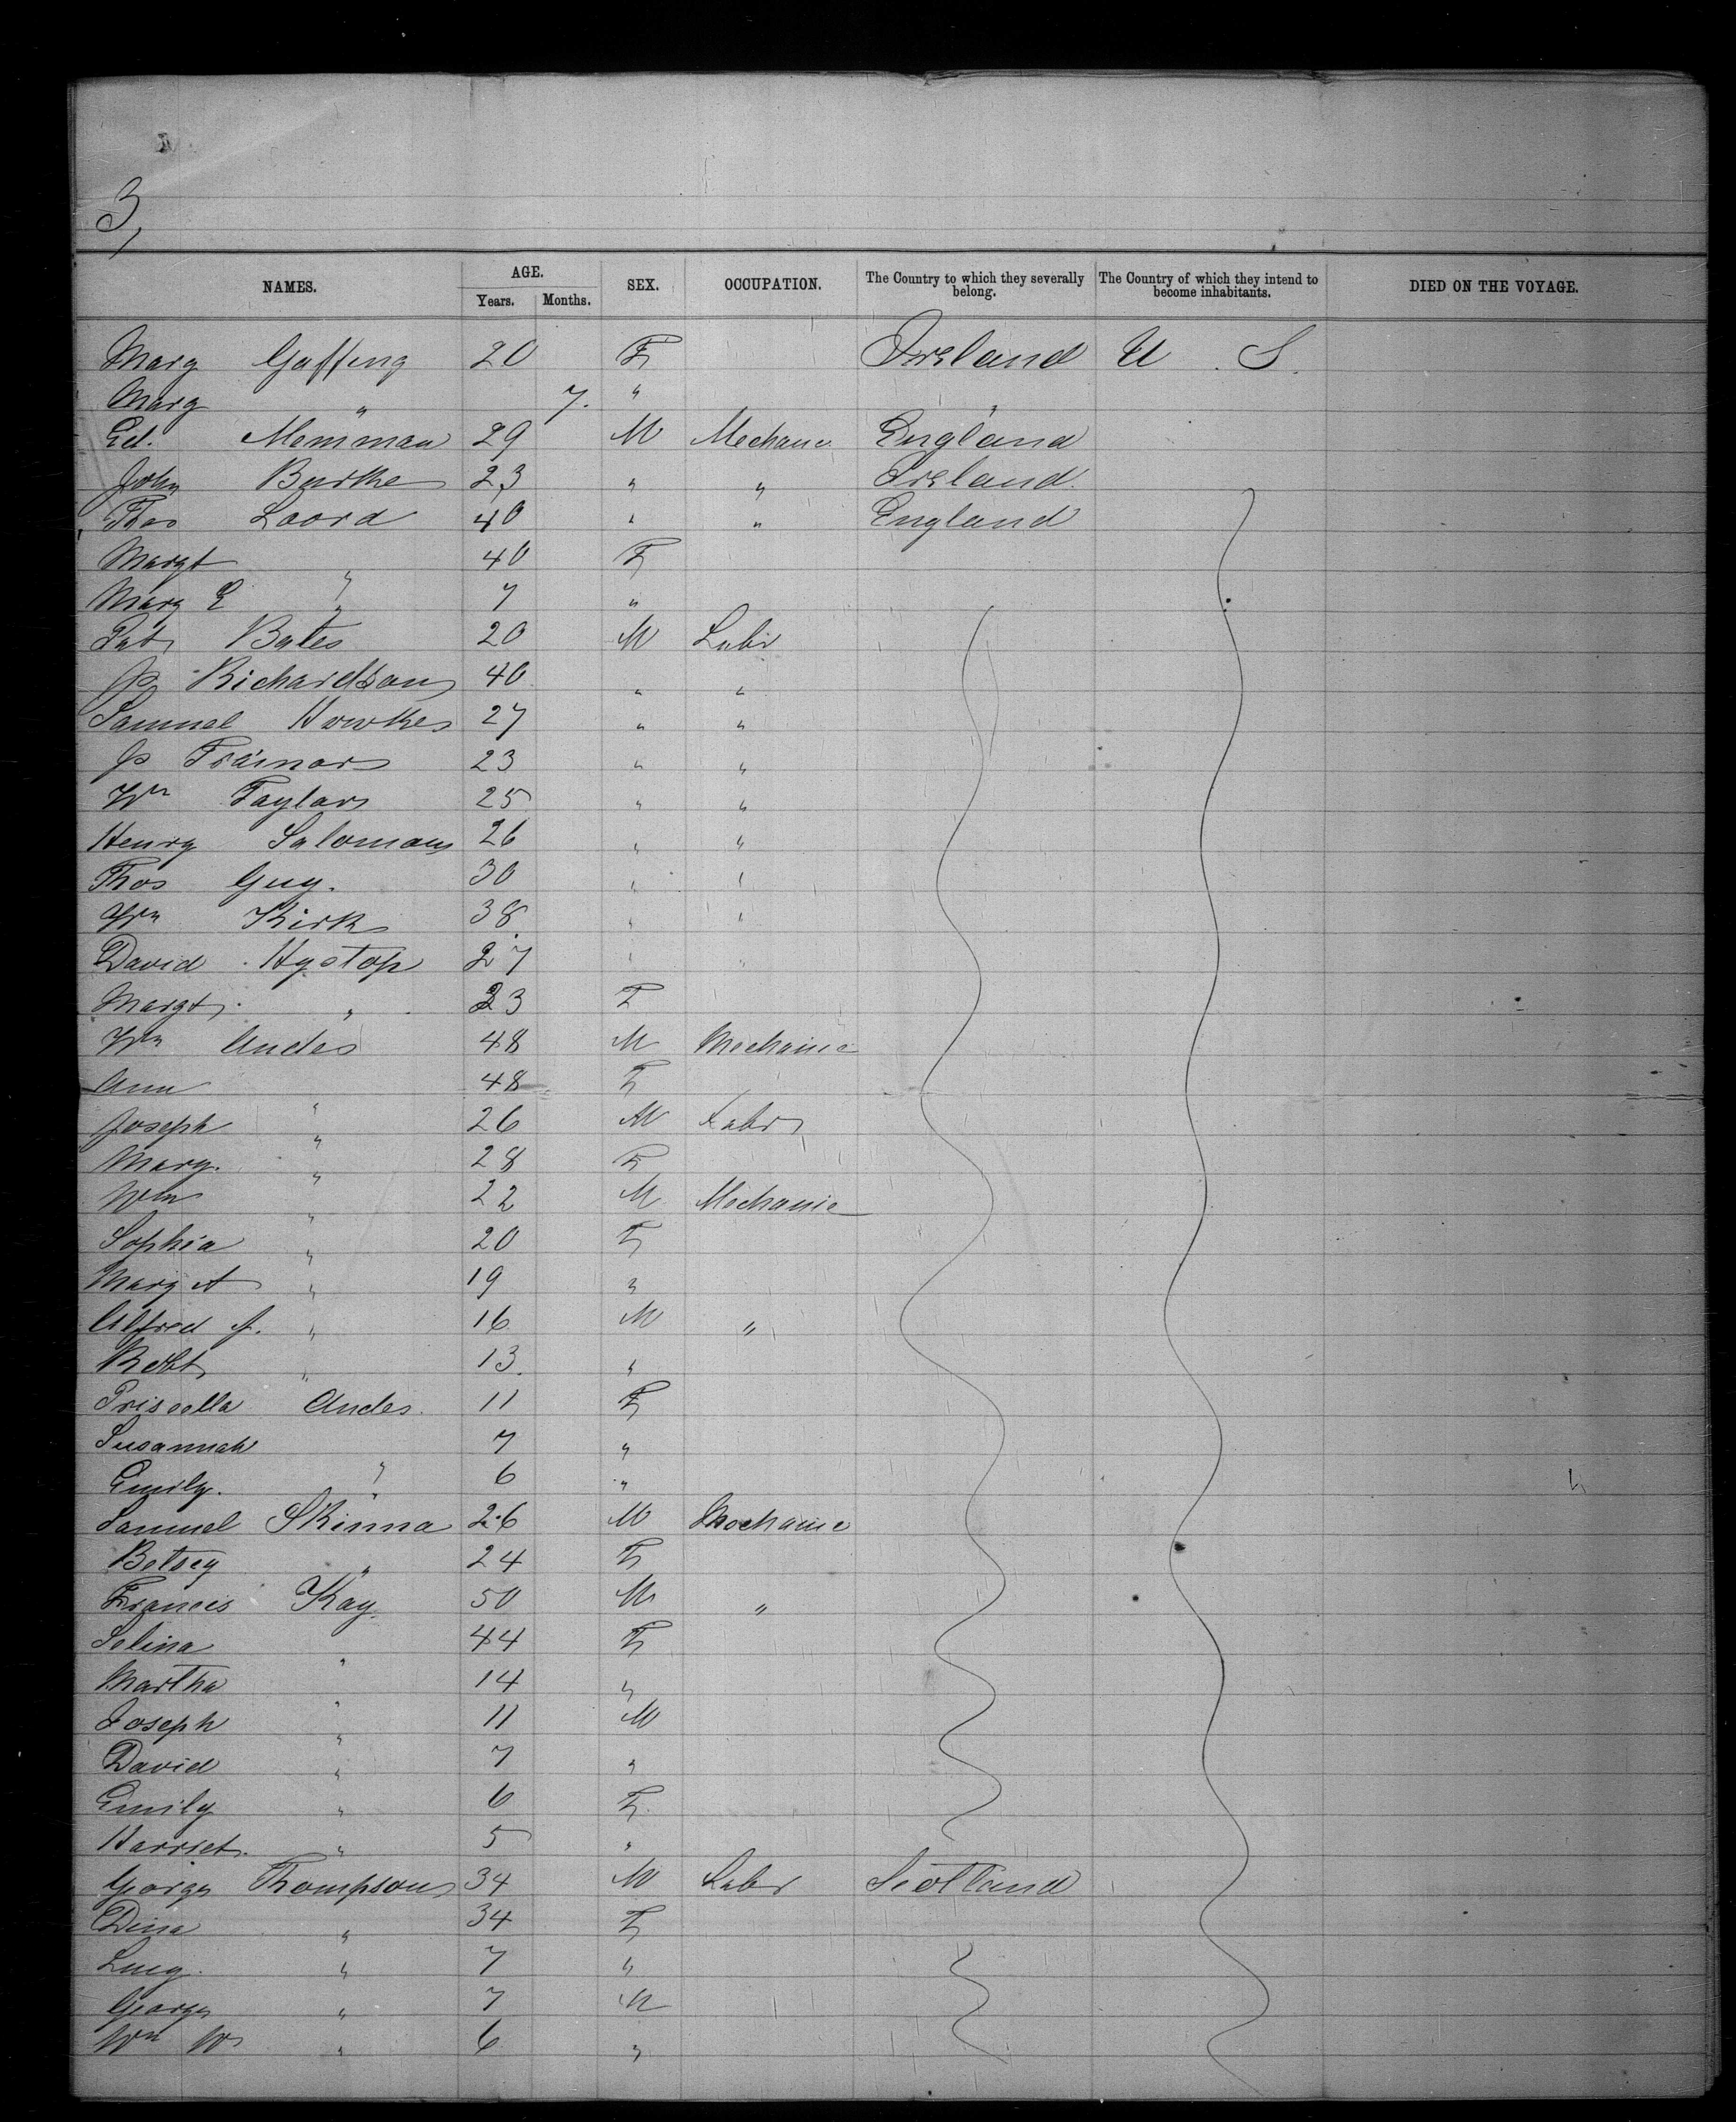 3,
NAMES. AGE. Years. Months. SEX. OCCUPATION. The Country to which they severally belong. The Country of which they intend to become inhabitants. DIED ON THE VOYAGE.
Mary Gaffeng 20 F Ireland U. S.
Mary " 7. " "
Ed. Merriman 29 M Mechanic England
John Burke 23 " " Ireland.
Thos Loord 40 " " England
Margt " 40 F
Mary E " 7 "
Pat Bates 20 M Labr
Js Richardson 40 " "
Samuel Hawkes 27 " "
Js Trainor 23 " "
Wm Taylor 25 " "
Henry Saloman 26 " "
Thos Guy. 30 " "
Wm Kirk 38 " "
David Hystop 27 " "
Margt " 23 F
Wm Andes 48 M Mechanic
Ann " 48 F
Joseph " 26 M Labr
Mary. " 28 F
Wm " 22 M Mechanic
Sophia " 20 F
Mary A " 19 "
Alfred J. " 16 M "
Robt " 13 "
Priscella Andes. 11 F
Susannah " 7 "
Emily. " 6 "
Samuel Skinna 26 M Mechanic
Betsey " 24 F
Francis Kay 50 M "
Selina " 44 F
Martha " 14 "
Joseph " 11 M
David " 7 "
Emily " 6 F
Harriet. " 5 "
George Thompson 34 M Labr Scotland
Dina " 34 F
Lucy. " 7 "
George " 7 M
Wm W " 6 "